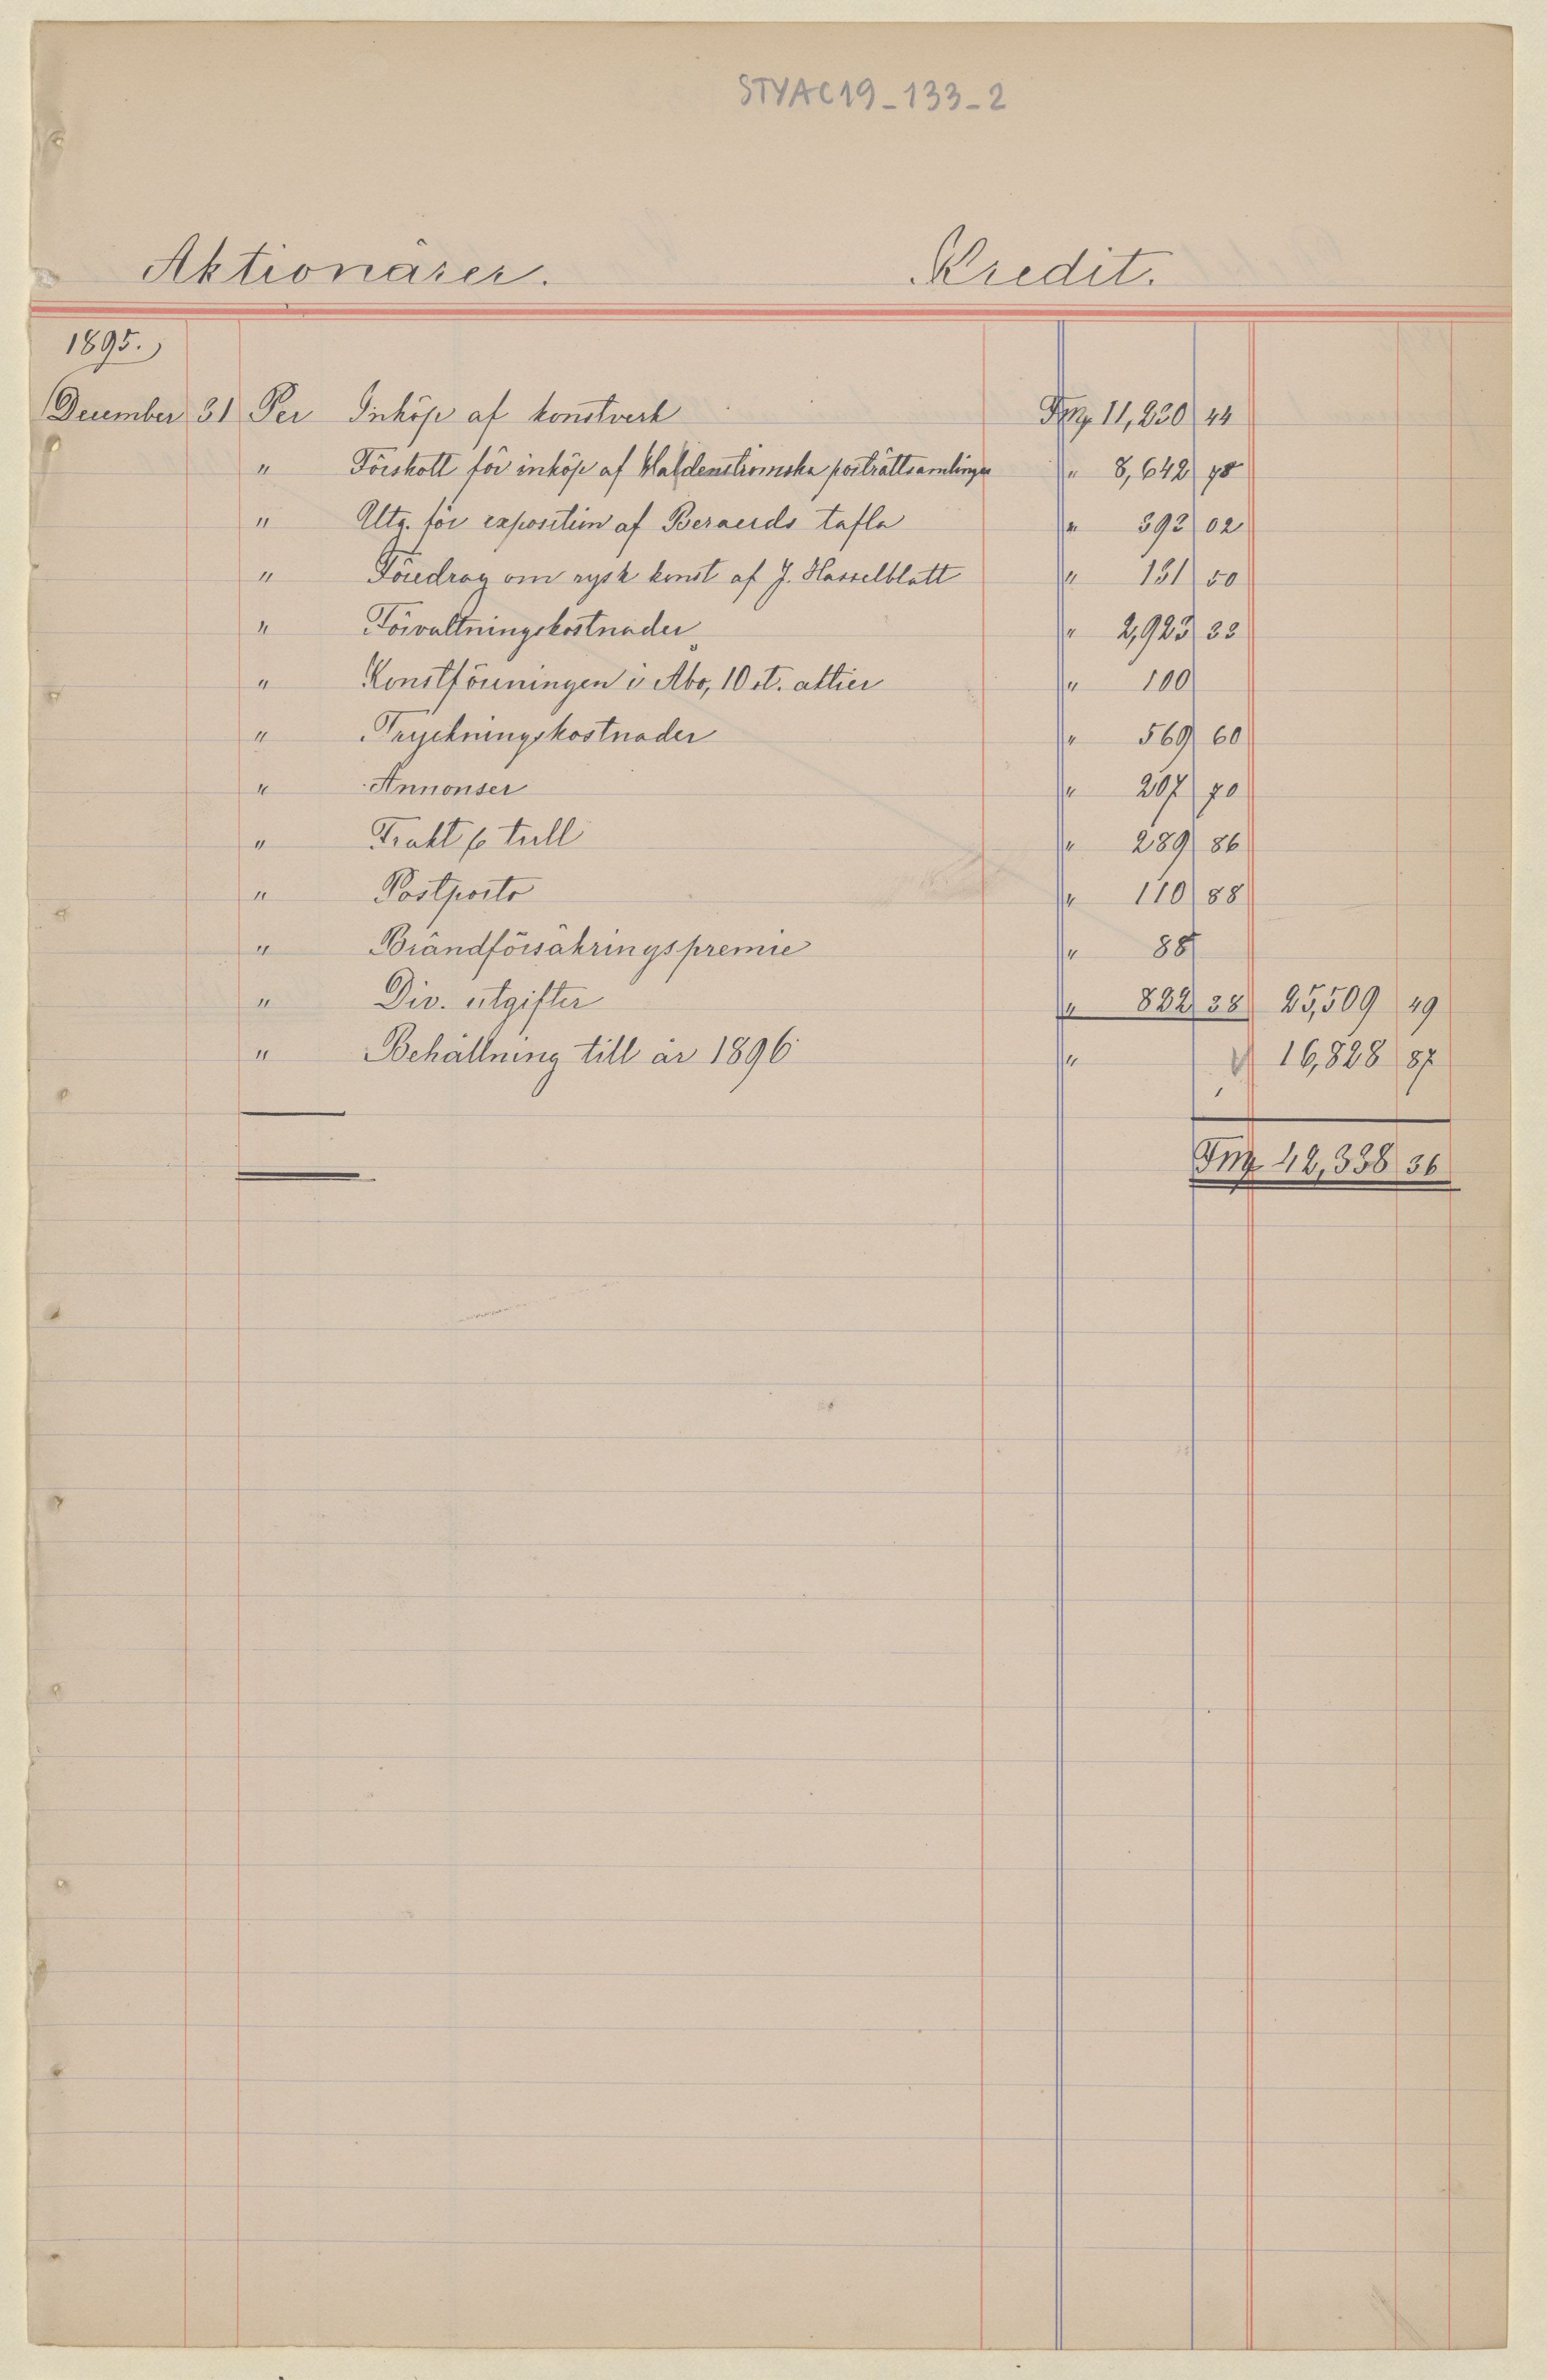 STYAC19_133_2
Aktionärer. Kredit.
1895.
December 31 Per Inköp af konstverk Fmk 11,230 44
" Förskott för inköp af Waldenströmska porträttsamlingen " 8,642 78
" Utg. för exposition af Beraerds tafla " 393 02
" Föredrag om rysk konst af J. Hasselblatt " 131 50
" Förvaltningskostnader " 2,923 33
" Konstföreningen i Åbo, 10 st. aktier " 100
" Tryckningskostnader " 569 60
" Annonser " 207 70
" Frakt & tull " 289 86
" Postporto " 110 88
" Brandförsäkringspremie " 88
" Div. utgifter " 822 38 25,509 49
" Behållning till år 1896 " 16,828 87
Fmk 42,338 36